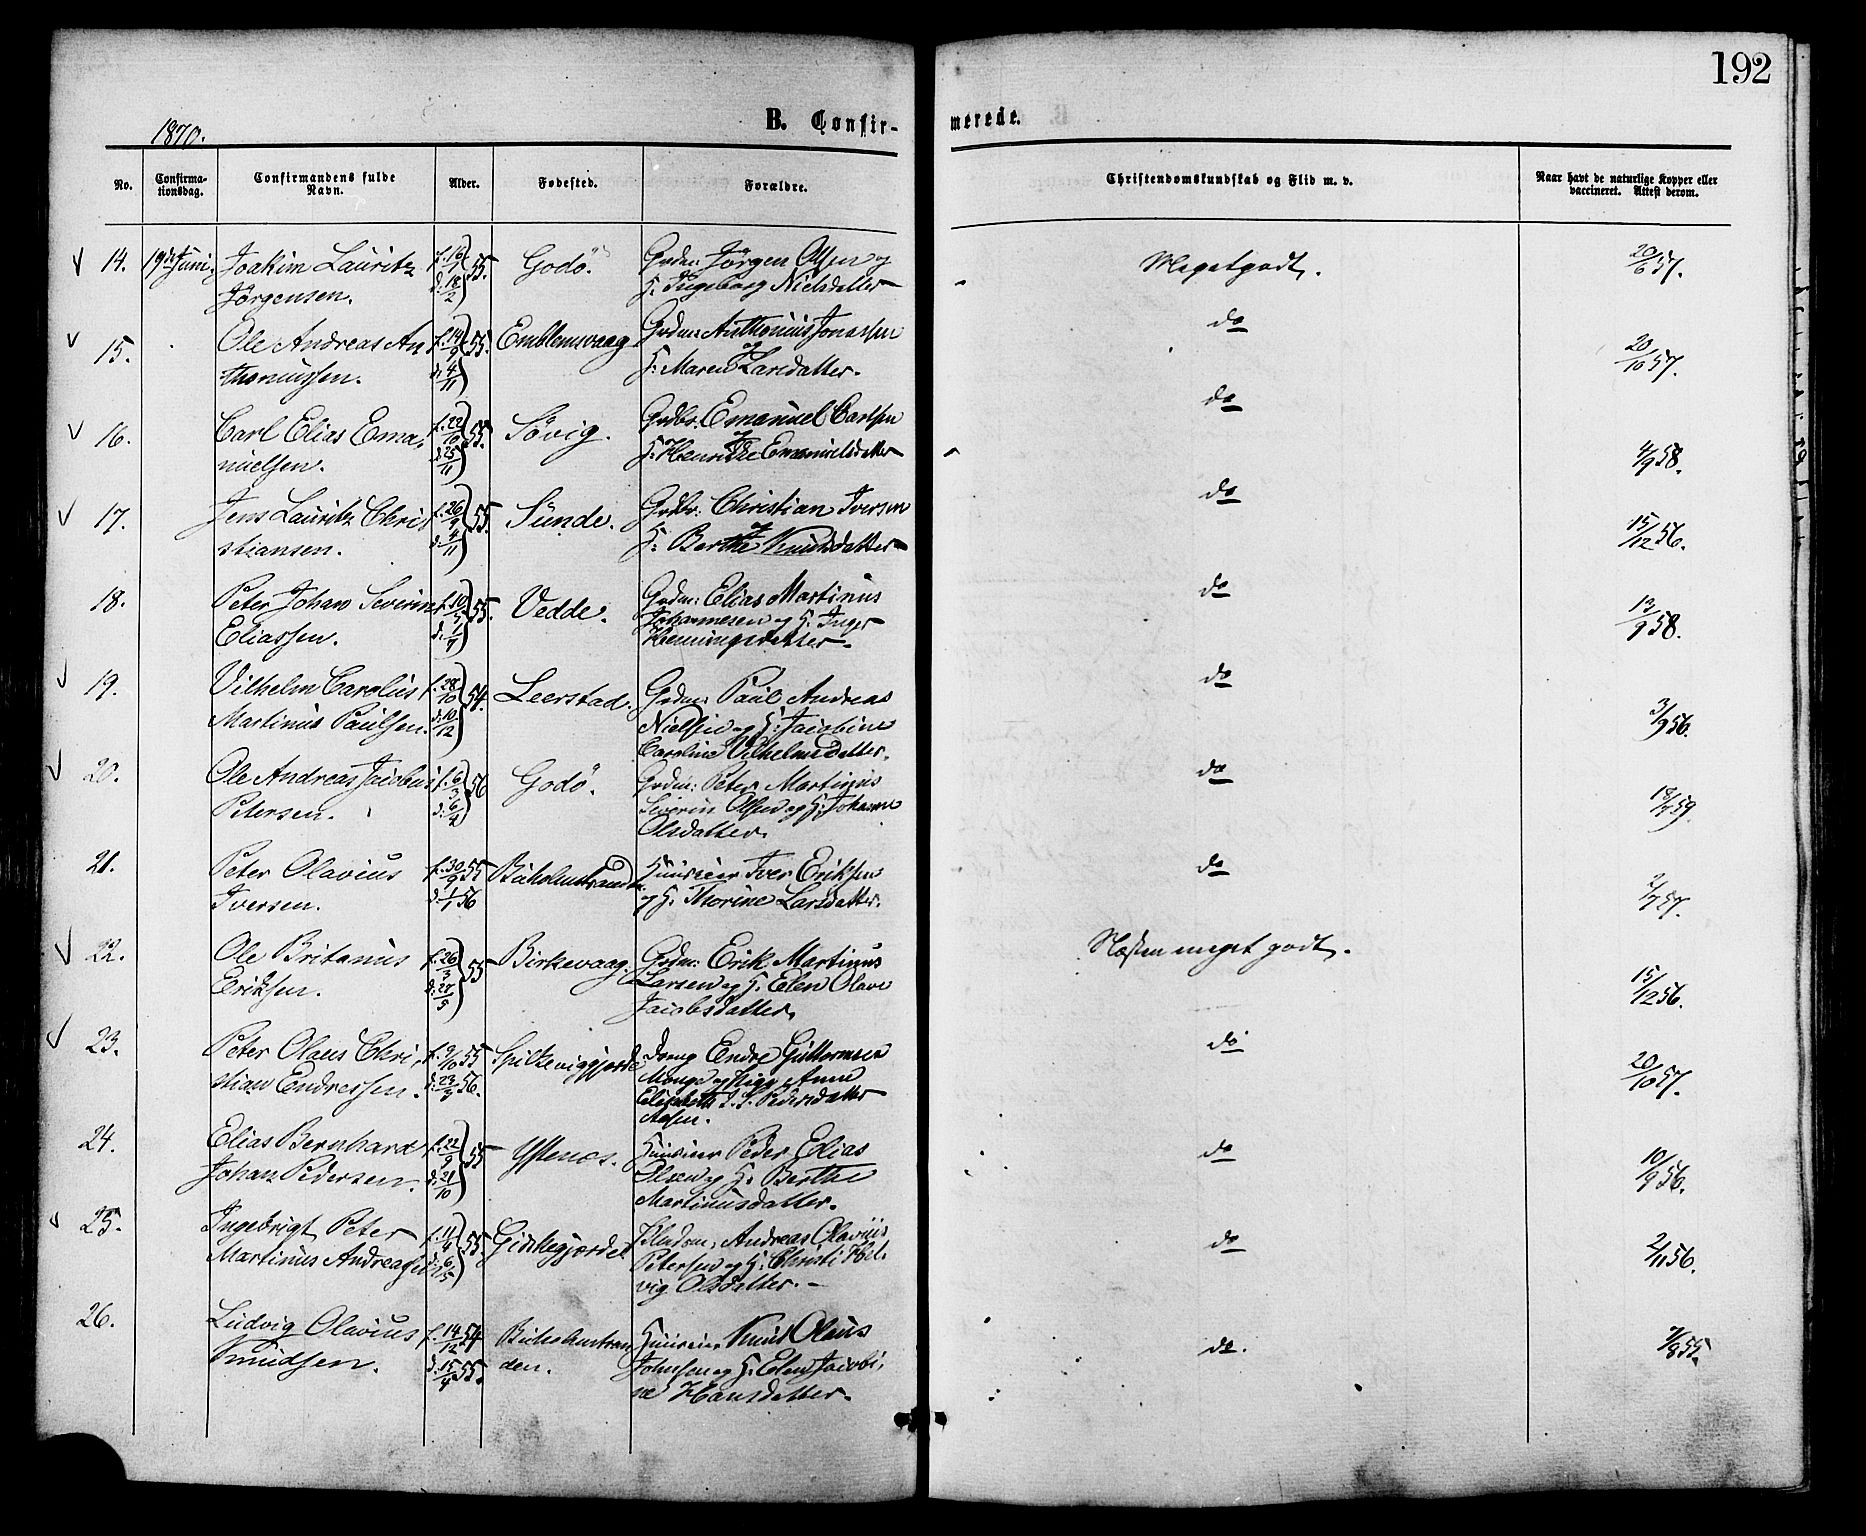 192
1870.
B. Confir-
merede.
No.
Confirma-
tionsdag.
Confirmandens fulde
Navn.
Alder.
Fødested.
Forældre.
Christendomskundskab og Flid m. v.
Naar havt de naturlige Kopper eller
vaccineret. Attest derom.
14. 19de Juni Joakim Lauritz f. 16/1 55. Godö. Grdm: Jörgen Olsen og Megetgodt. 20/6 57.
Jörgensen. d. 18/2 H: Ingeborg Nielsdatter
15. Ole Andreas An f. 14/9 55. Emblemsvaag Grdm: Anthonius Jonassen do 20/10 57.
thoniussen. d. 4/11 H: Maren Larsdatter.
16. Carl Elias Ema- f. 22/10 55. Sövig. Grdbr. Emanuel Carlsen do 4/9 58.
nuelsen. d. 25/11 H: Henrikke Emanuelsdatter
17. Jens Lauritz Chri f. 26/9 55. Sunde. Grdbr: Christian Iversen do 15/12 56.
stiansen. d. 4/11 H: Berthe Knudsdatter
18. Peter Johan Severin f. 10/5 55. Vedde. Grdm: Elias Martinus do 13/9 58.
Eliassen. d. 1/7 Johannesen og H: Inger
Henningsdatter.
19. Vilhelm Carolus f. 28/10 54. Leerstad. Grdm: Paul Andreas do 3/9 56.
Martinus Paulsen. d. 10/12 Nielsen og H: Jacobine
Caroline Vilhelmsdatter.
20. Ole Andreas Jacobus f. 6/3 56 Godö. Grdm: Peter Martinus do 18/7 59.
Petersen. d. 6/4 Severin Olsen og H: Johanne
Olsdatter.
21. Peter Olavius f. 30/9 55 Husmier Iver Eriksen do 2/7 57.
Iversen. d. 1/1 56 og H. Thorine Larsdatter.
22. Ole Britanus f. 26/3 55 Birkevaag. Grdm: Erik Martinus Næsten meget godt. 15/12 56.
Eriksen. d. 27/5 Larsen og H. Elen Olave
Jacobsdatter.
23. Peter Olaus Chri- f. 9/10 55 Spilkeviggjerde Dreng Endre Guttormsen do 20/10 57.
stian Endressen. d. 23/3 56. Monge og Pige Anne
Elisabeth Pedersdatter
24. Elias Bernhard f. 22/9 55 Ystenes. Husmier Peder Elias do 10/9 56.
Johan Pedersen. d. 21/10 Olsen og H. Berthe
Martinusdatter.
25. Ingebrigt Peter f. 11/4 55. Giskegjerdet Andreas Olavius do 2/11 56.
Martinus Andreasen d. 6/5 Petersen og H: Christi Hel-
vig Olsdatter.
26. Ludvig Olavius f. 14/12 54 Husmier Knud Olaus do. 7/8 55.
Knudsen. d. 15/4 55. den. Johnsen og H. Elen Jacobi-
ne Hansdatter.